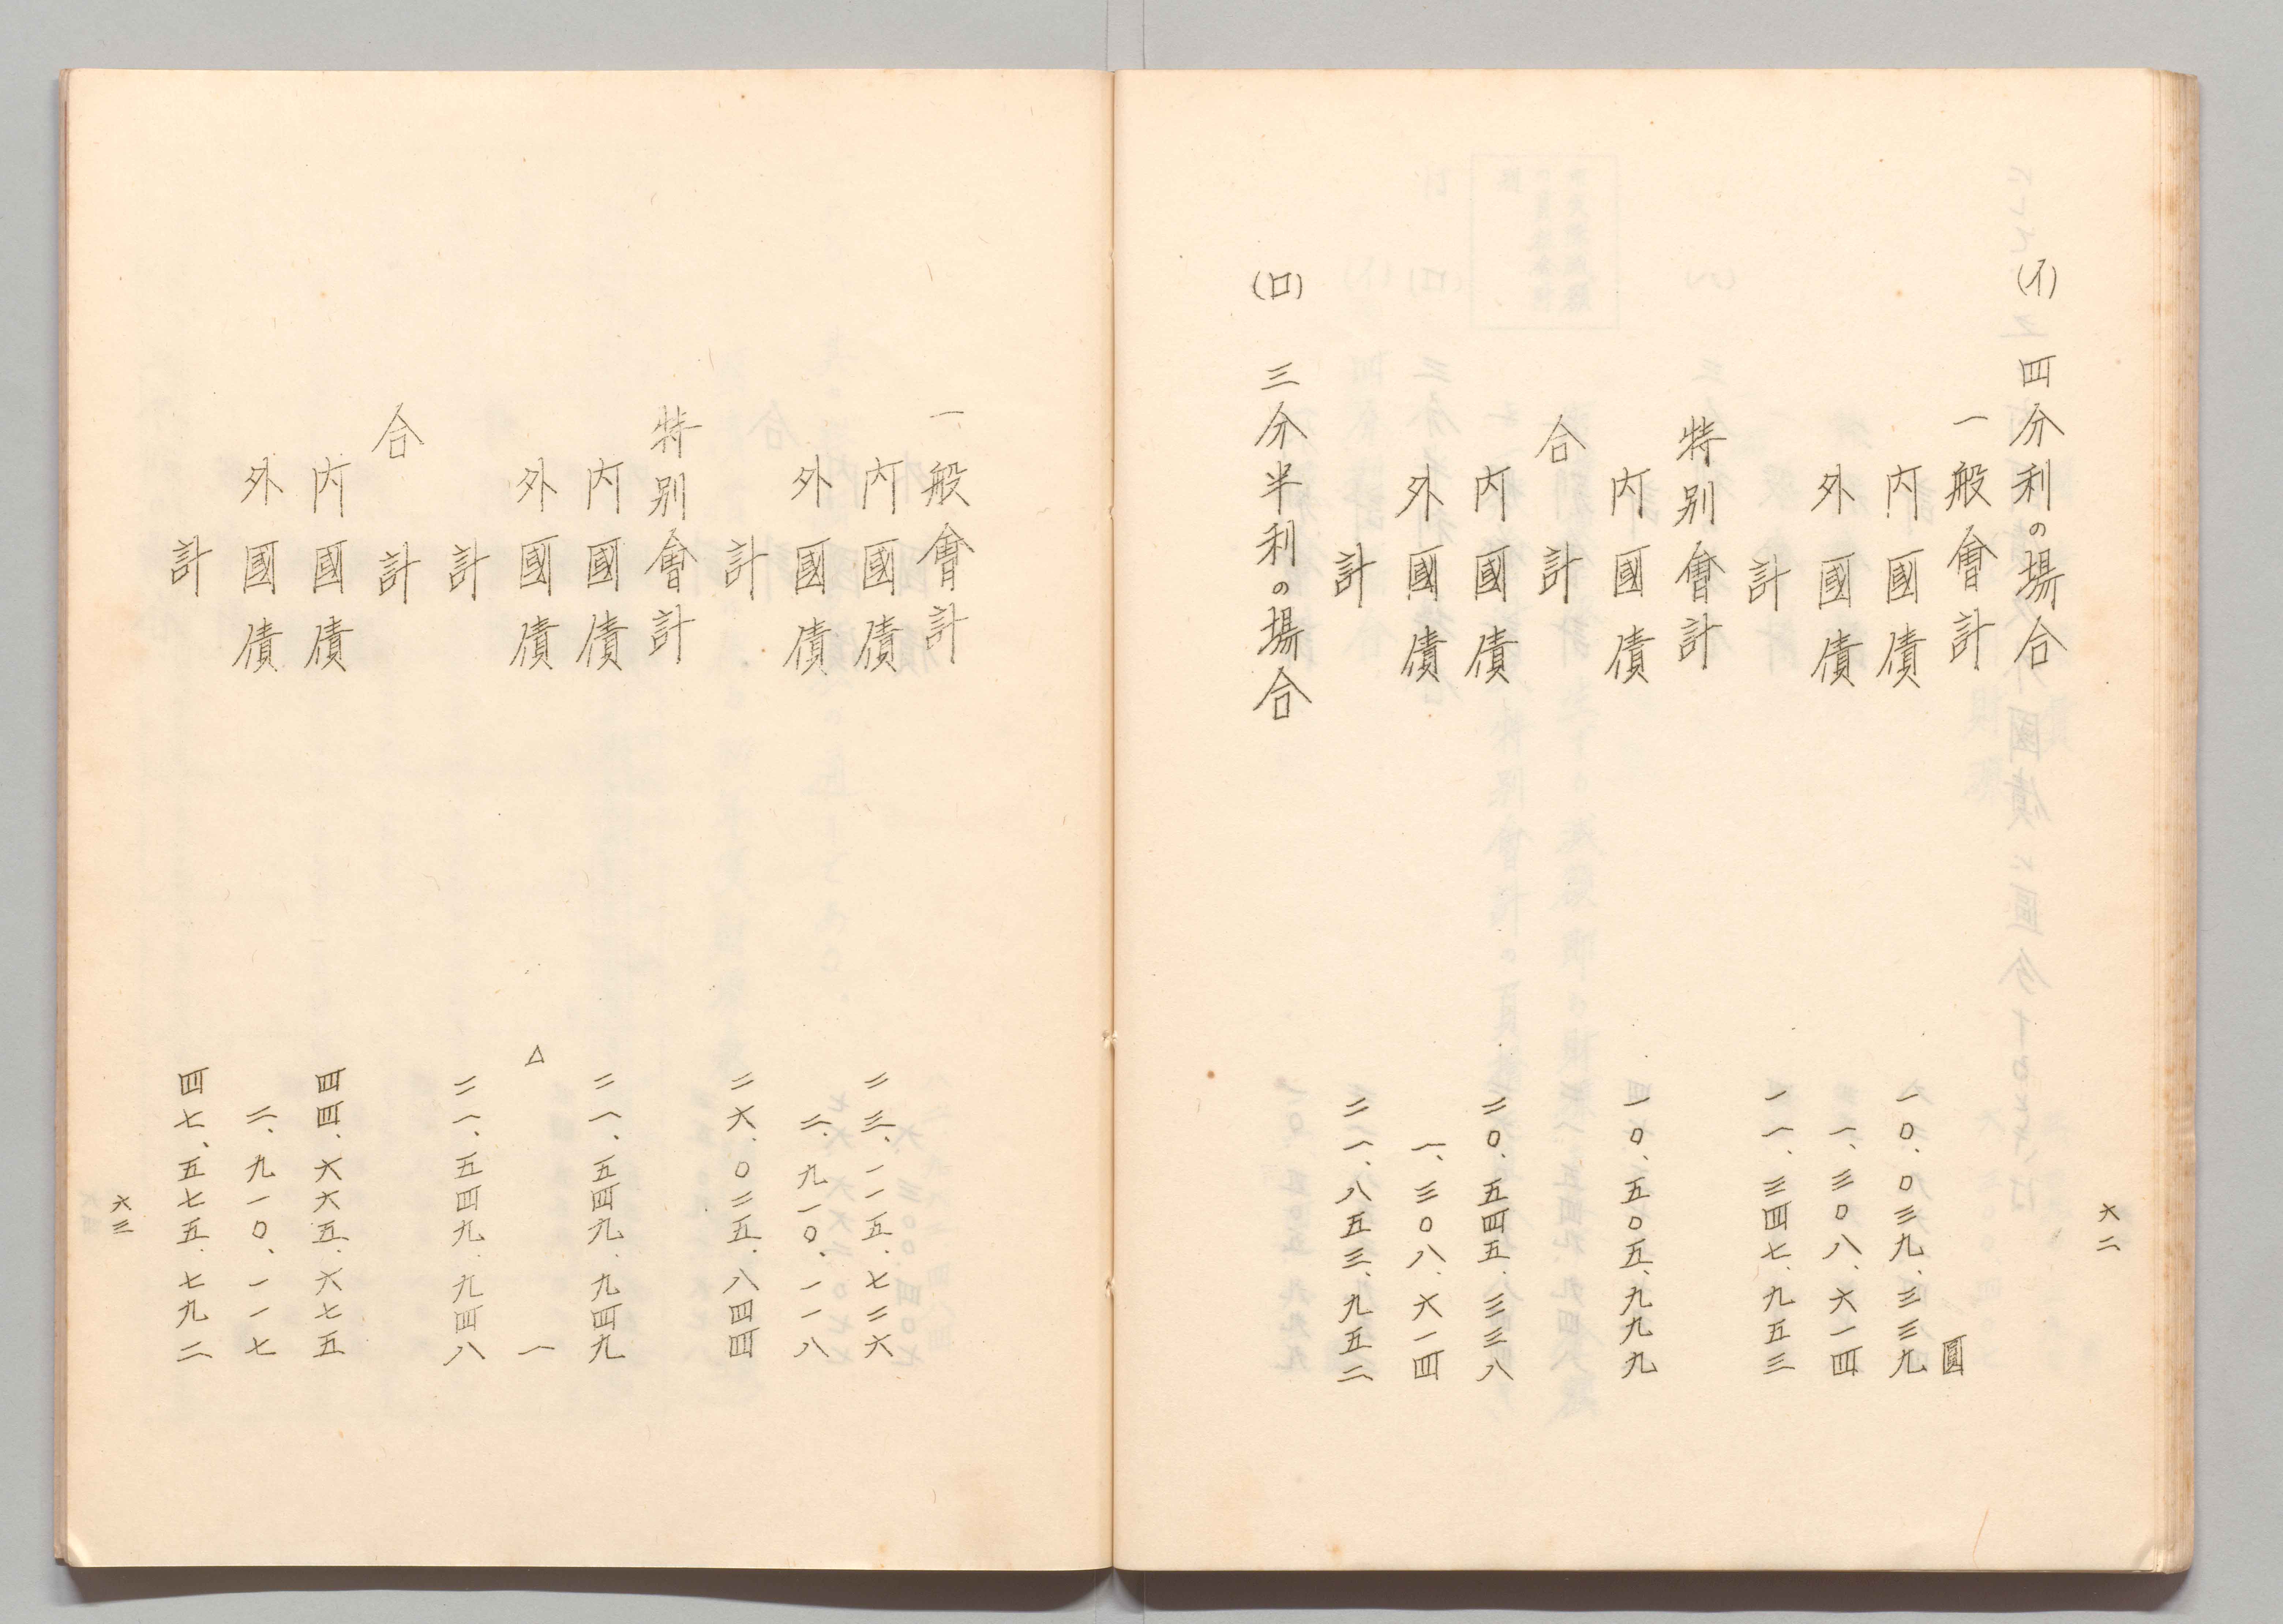 六二
(イ) 四分利の場合
一般會計 圓
内國債 一〇、〇三九、三三九
外國債 一、三〇八、六一四
計 一一、三四七、九五三
特別會計
内國債 一〇、五〇五、九九九
合計
内國債 二〇、五四五、三三八
外國債 一、三〇八、六一四
計 二一、八五三、九五二
(ロ) 三分半利の場合
一般會計
内國債 二三、一一五、七二六
外國債 二、九一〇、一一八
計 二六、〇二五、八四四
特別會計
内國債 二一、五四九、九四九
外國債 △ 一
計 二一、五四九、九四八
合計
内國債 四四、六六五、六七五
外國債 二、九一〇、一一七
計 四七、五七五、七九二
六三